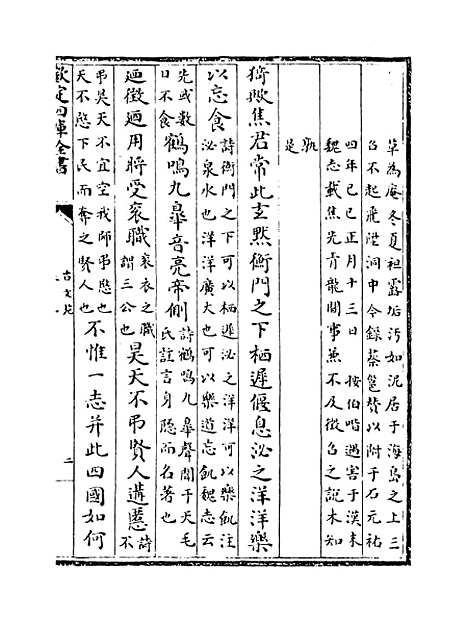 草為庵冬夏袒露垢汚如泥居于海島之上三
召不起飛陞洞中今錄蔡邕賛以附于石元祐
四年己巳正月十三日　按伯喈遇害于漢末
魏志載焦先青龍間事兼不及徵召之説未知
孰
是
猗歟焦君常此玄黙衡門之下栖遲偃息泌之洋洋樂
以忘食
詩衡門之下可以栖遲泌之洋洋可以樂飢注
泌泉水也洋洋廣大也可以樂道忘飢魏志云
先或數
日不食
鶴鳴九臯音亮帝側
詩鶴鳴九臯聲聞于天毛
氏註言身隱而名著也
廼徵廼用將受衮職
衮衣之職
謂三公也
昊天不弔賢人遘慝
詩
不
弔昊天不宜空我師弔愍也
天不愍下民而奪之賢人也
不惟一志并此四國如何
欽定四庫全書
古文苑
二